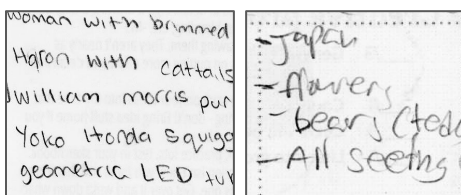 woman with brimmed
Haron with cattails
William morris pur
Yoko Honda squigg
geometric LED tur
-Japan
-flowers
-bears (tedd
-All seeing